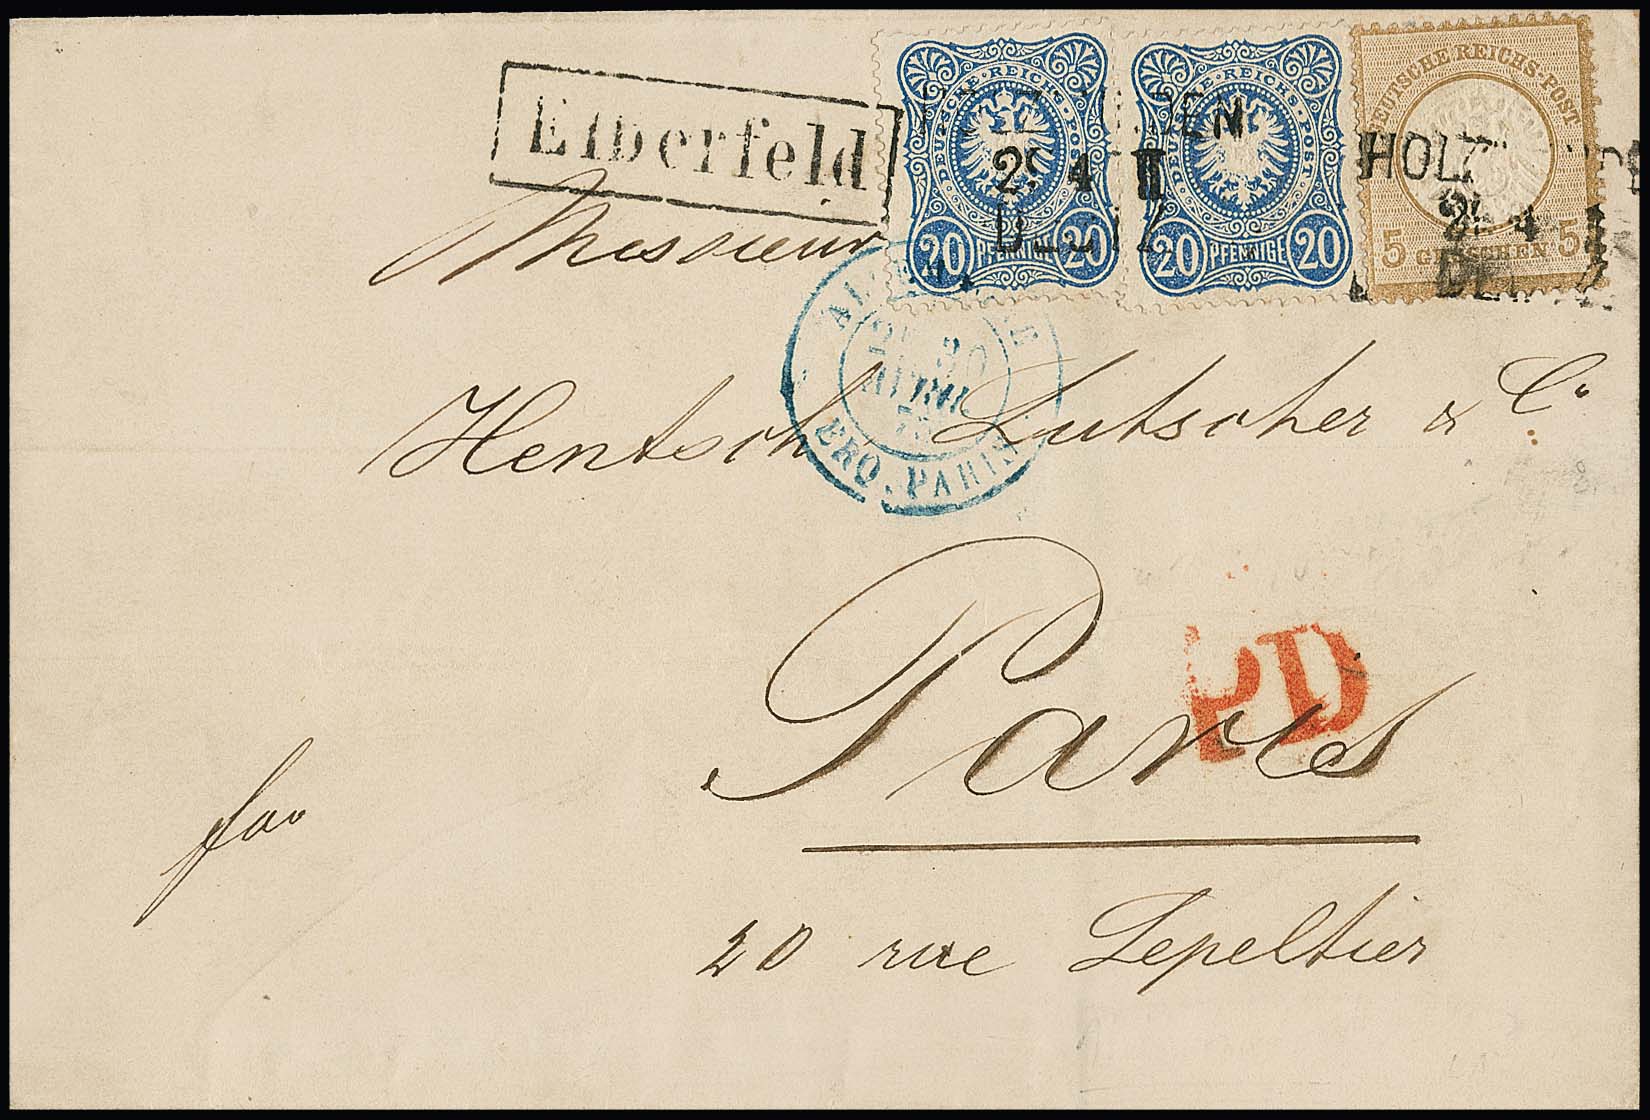 Elberfeld
DEUTSCHE · REICHS-POST
20 PFENNIGE 20
DEUTSCHE · REICHS-POST
20 PFENNIGE 20
DEUTSCHE REICHS-POST
5 GROSCHEN 5
29 4 II
HOLZ
4
Messieurs
ERQ. PARIS
Hentsch Lutscher & Co.
PD
Paris
fco
20 rue Lepeltier